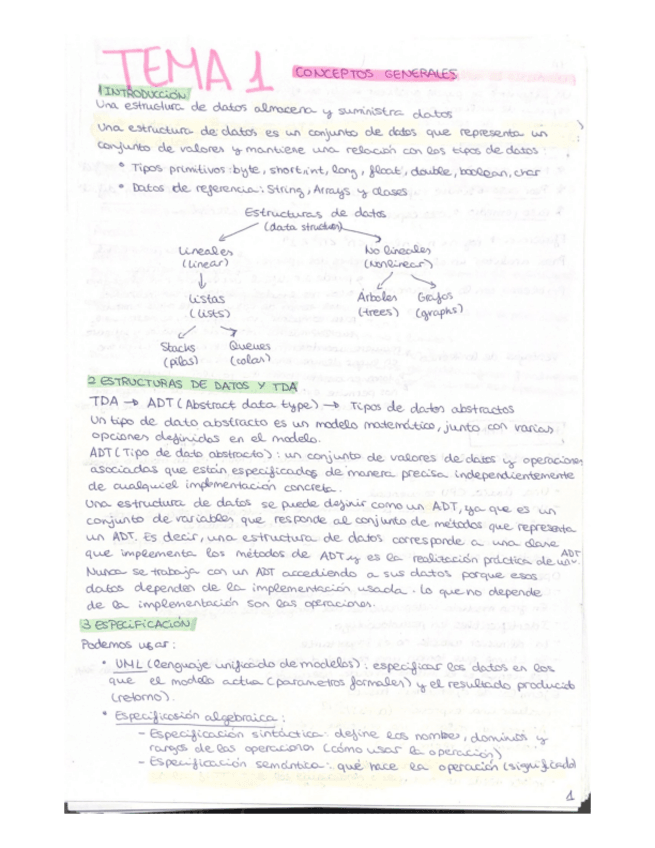 TEMA 1 CONCEPTOS GENERALES
1 INTRODUCCIÓN
Una estructura de datos almacena y suministra datos
Una estructura de datos es un conjunto de datos que representa un
conjunto de valores y mantiene una relación con los tipos de datos:
• Tipos primitivos: byte, short, int, long, float, double, boolean, char
• Datos de referencia: String, Arrays y clases
Estructuras de datos
(data structure)
Lineales No lineales
(Linear) (Nonlinear)
Listas Árboles Grafos
(Lists) (trees) (graphs)
Stacks Queues
(pilas) (colas)
2 ESTRUCTURAS DE DATOS Y TDA
TDA → ADT (Abstract data type) → Tipos de datos abstractos
Un tipo de dato abstracto es un modelo matemático, junto con varias
opciones definidas en el modelo.
ADT (Tipo de dato abstracto): un conjunto de valores de datos y operaciones
asociadas que están especificados de manera precisa independientemente
de cualquier implementación concreta.
Una estructura de datos se puede definir como un ADT, ya que es un
conjunto de variables que responde al conjunto de métodos que representa
un ADT. Es decir, una estructura de datos corresponde a una clase
que implementa los métodos de ADT y es la realización práctica de un ADT.
Nunca se trabaja con un ADT accediendo a sus datos porque esos
datos dependen de la implementación usada. Lo que no depende
de la implementación son las operaciones.
3 ESPECIFICACIÓN
Podemos usar:
• UML (lenguaje unificado de modelos): especificar los datos en los
que el modelo actua (parametros formales) y el resultado producido
(retorno).
• Especificasión algebraica:
- Especificación sintáctica: define los nombres, dominios y
rangos de las operaciones (cómo usar la operación)
- Especificación semántica: qué hace la operación (significado)
1